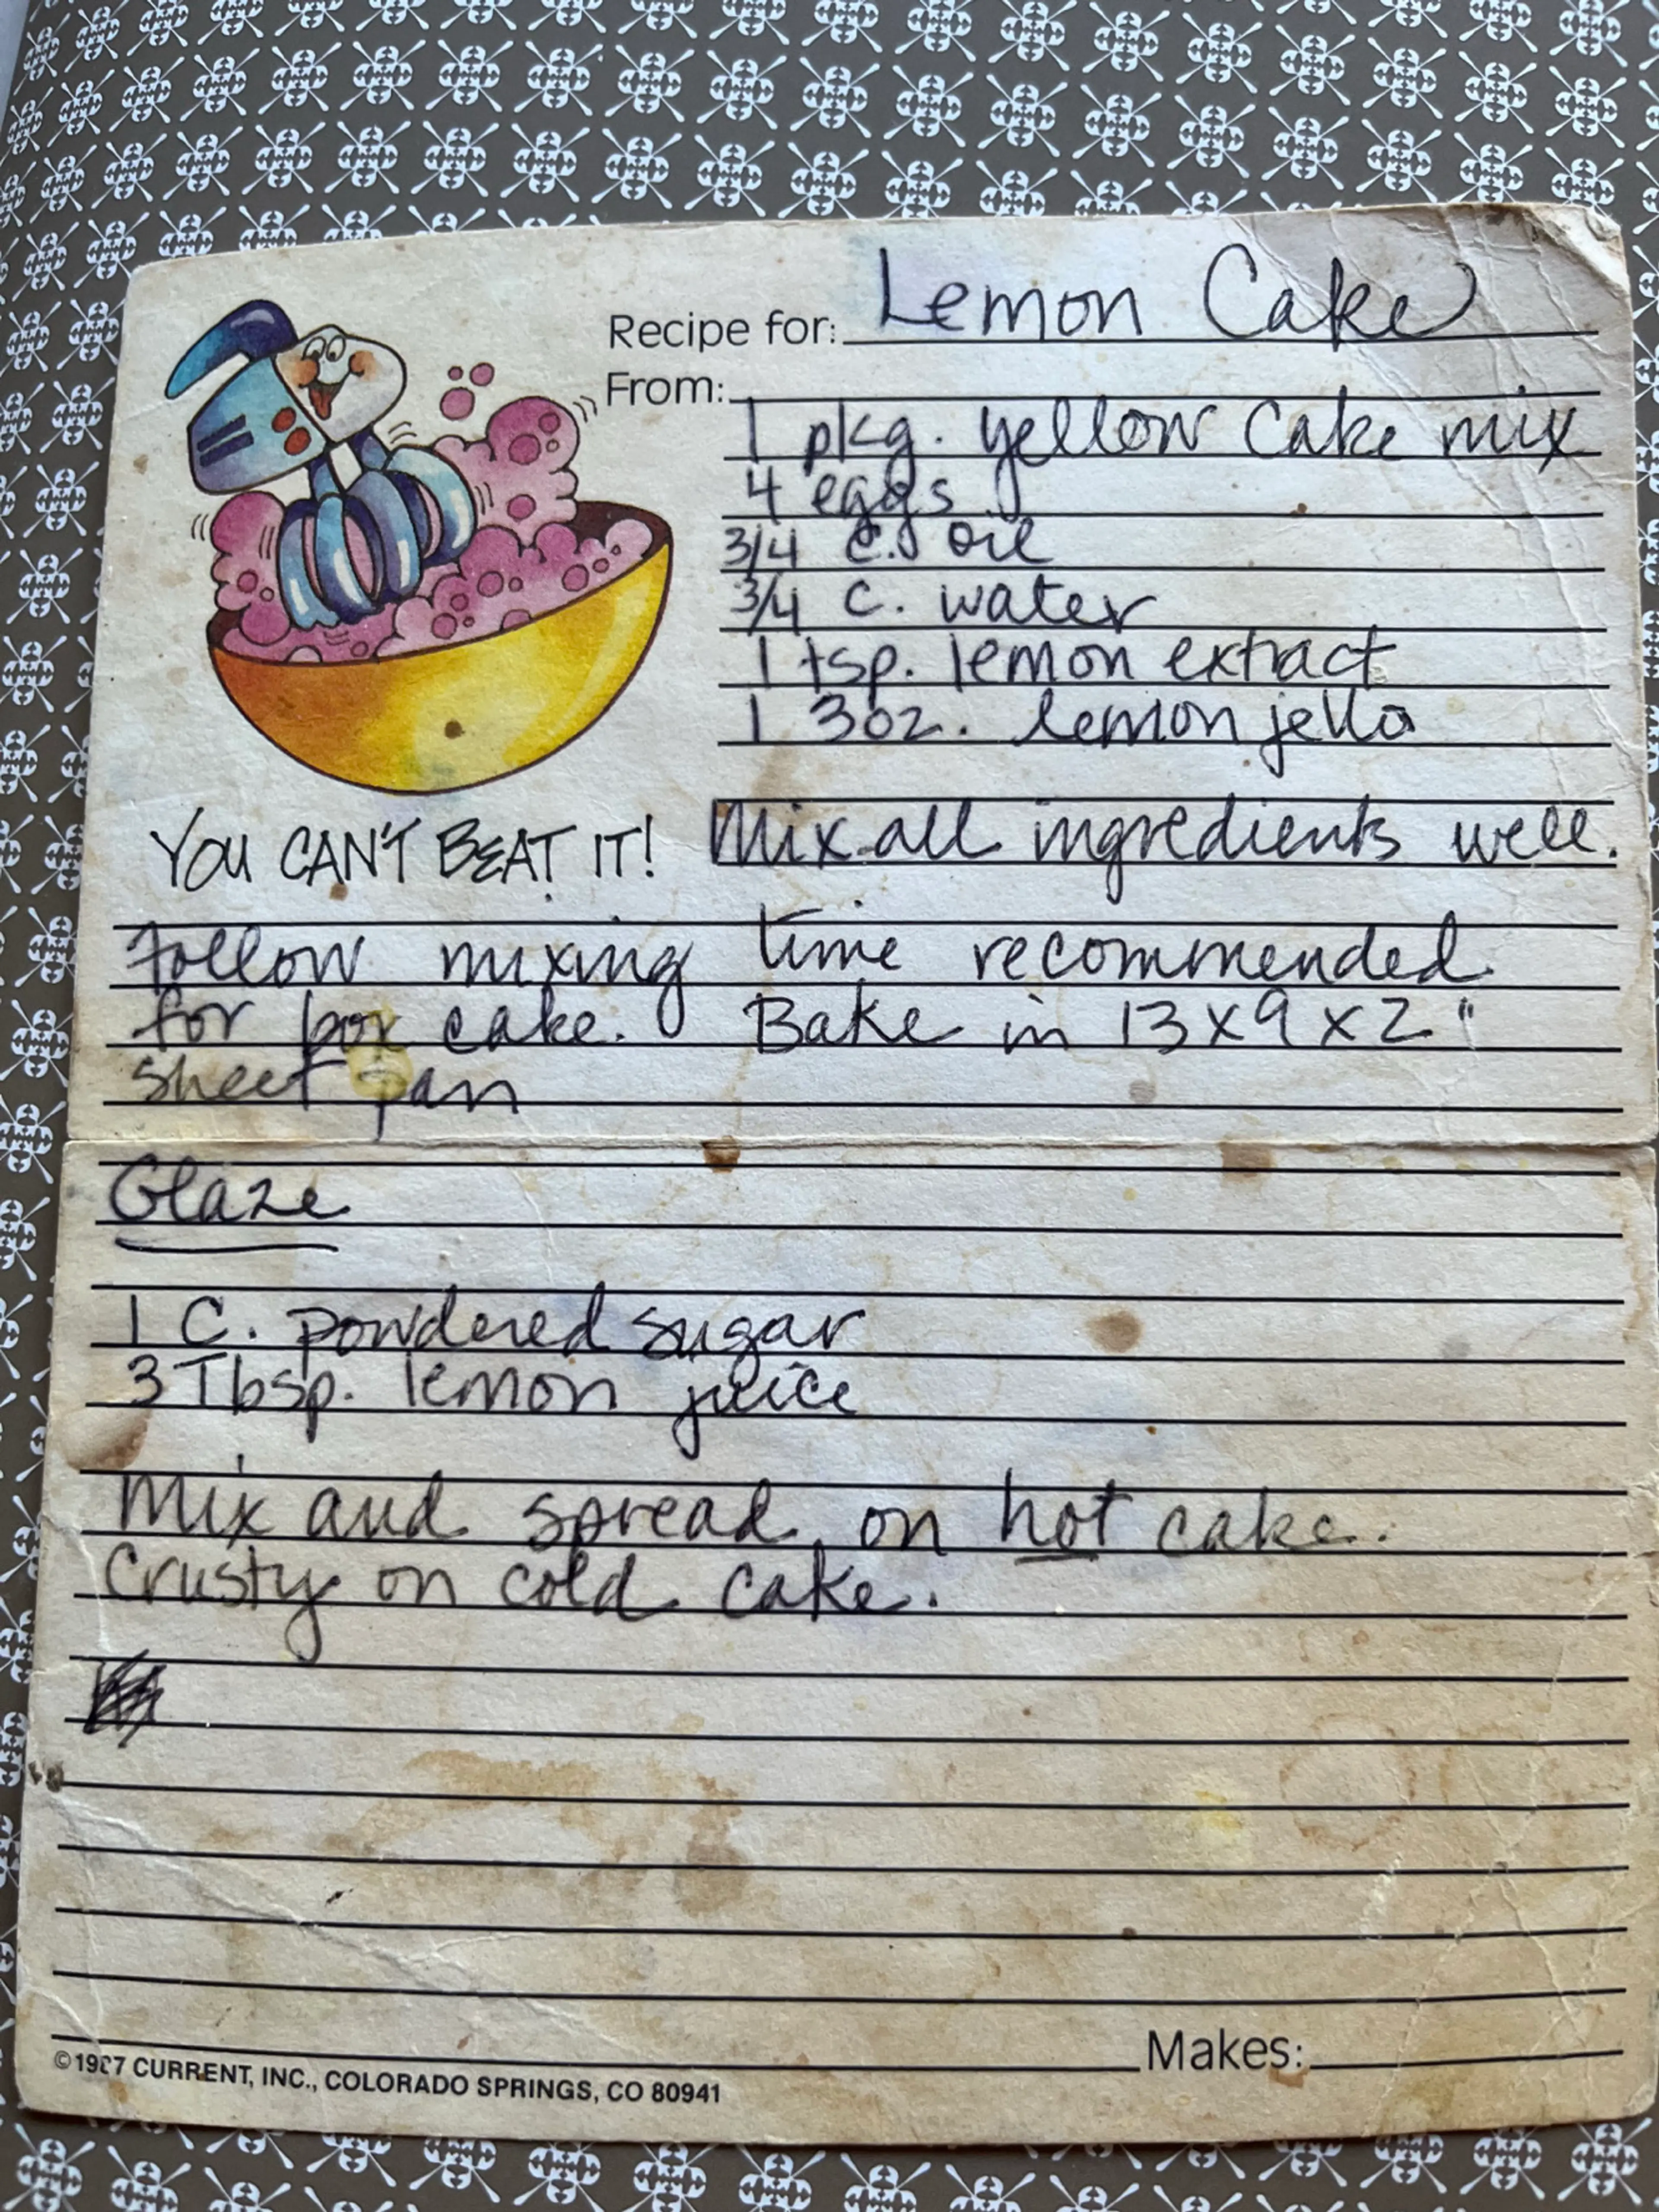 Recipe for: Lemon Cake
From:
1 pkg. yellow cake mix
4 eggs
3/4 c. oil
3/4 c. water
1 tsp. lemon extract
1 3oz. lemon jello
YOU CAN'T BEAT IT!
Mix all ingredients well.
Follow mixing time recommended
for box cake. Bake in 13x9x2"
sheet pan
Glaze
1 C. powdered sugar
3 Tbsp. lemon juice
Mix and spread on hot cake.
Crusty on cold cake.
Makes:
©1987 CURRENT, INC., COLORADO SPRINGS, CO 80941